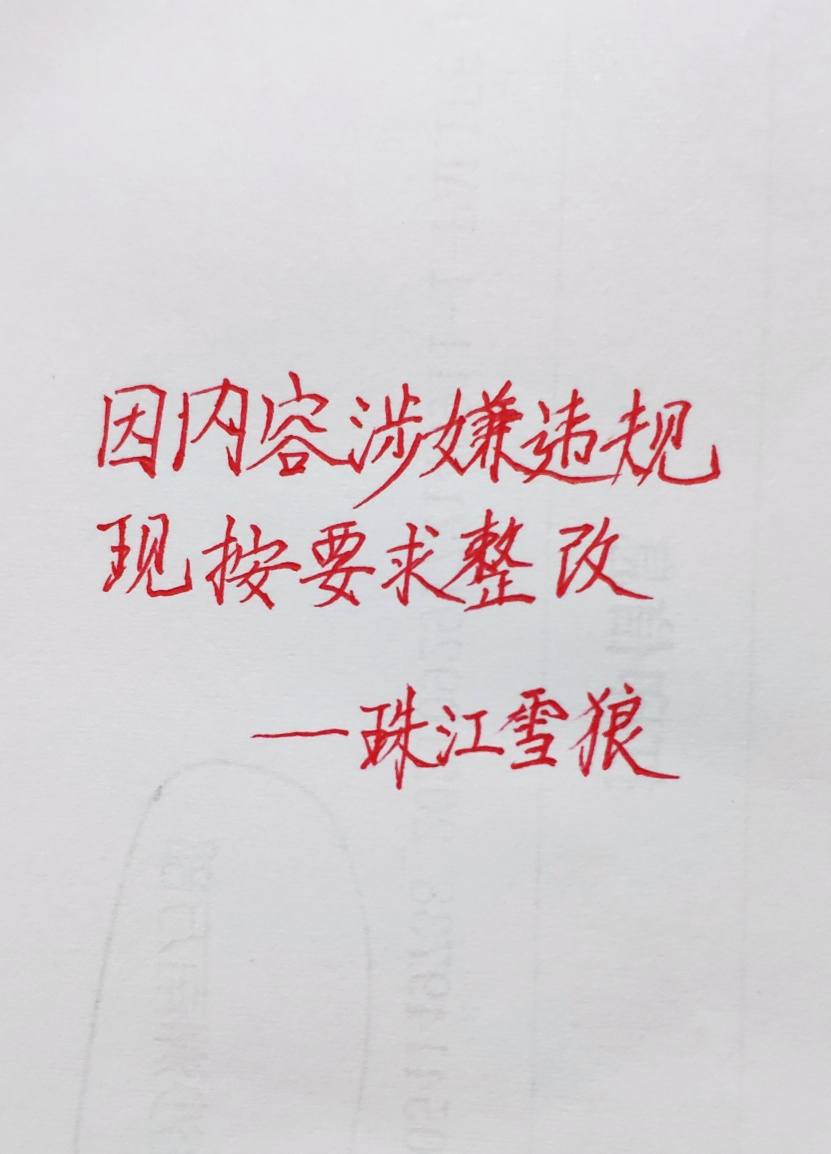 因内容涉嫌违规
现按要求整改
—珠江雪狼